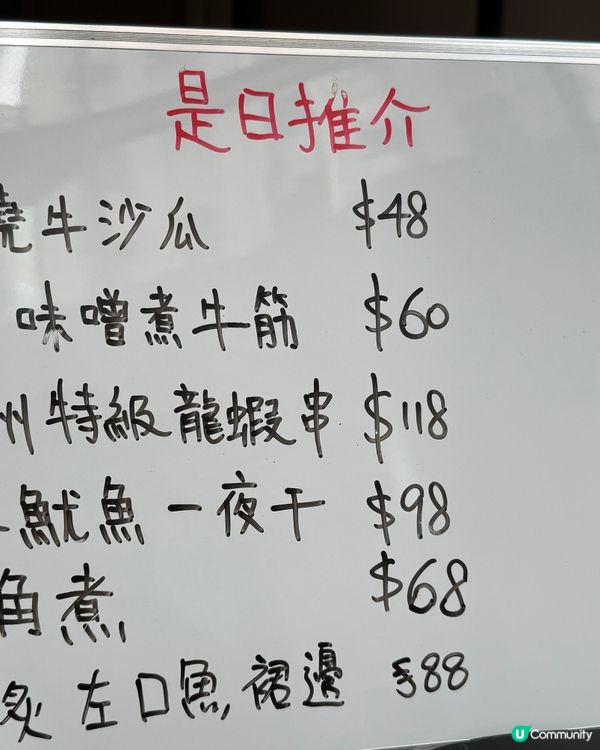 是日推介
燒牛沙瓜 $48
味噌煮牛筋 $60
州特級龍蝦串 $118
魷魚一夜干 $98
角煮 $68
炙左口魚裙邊 $88
U Community